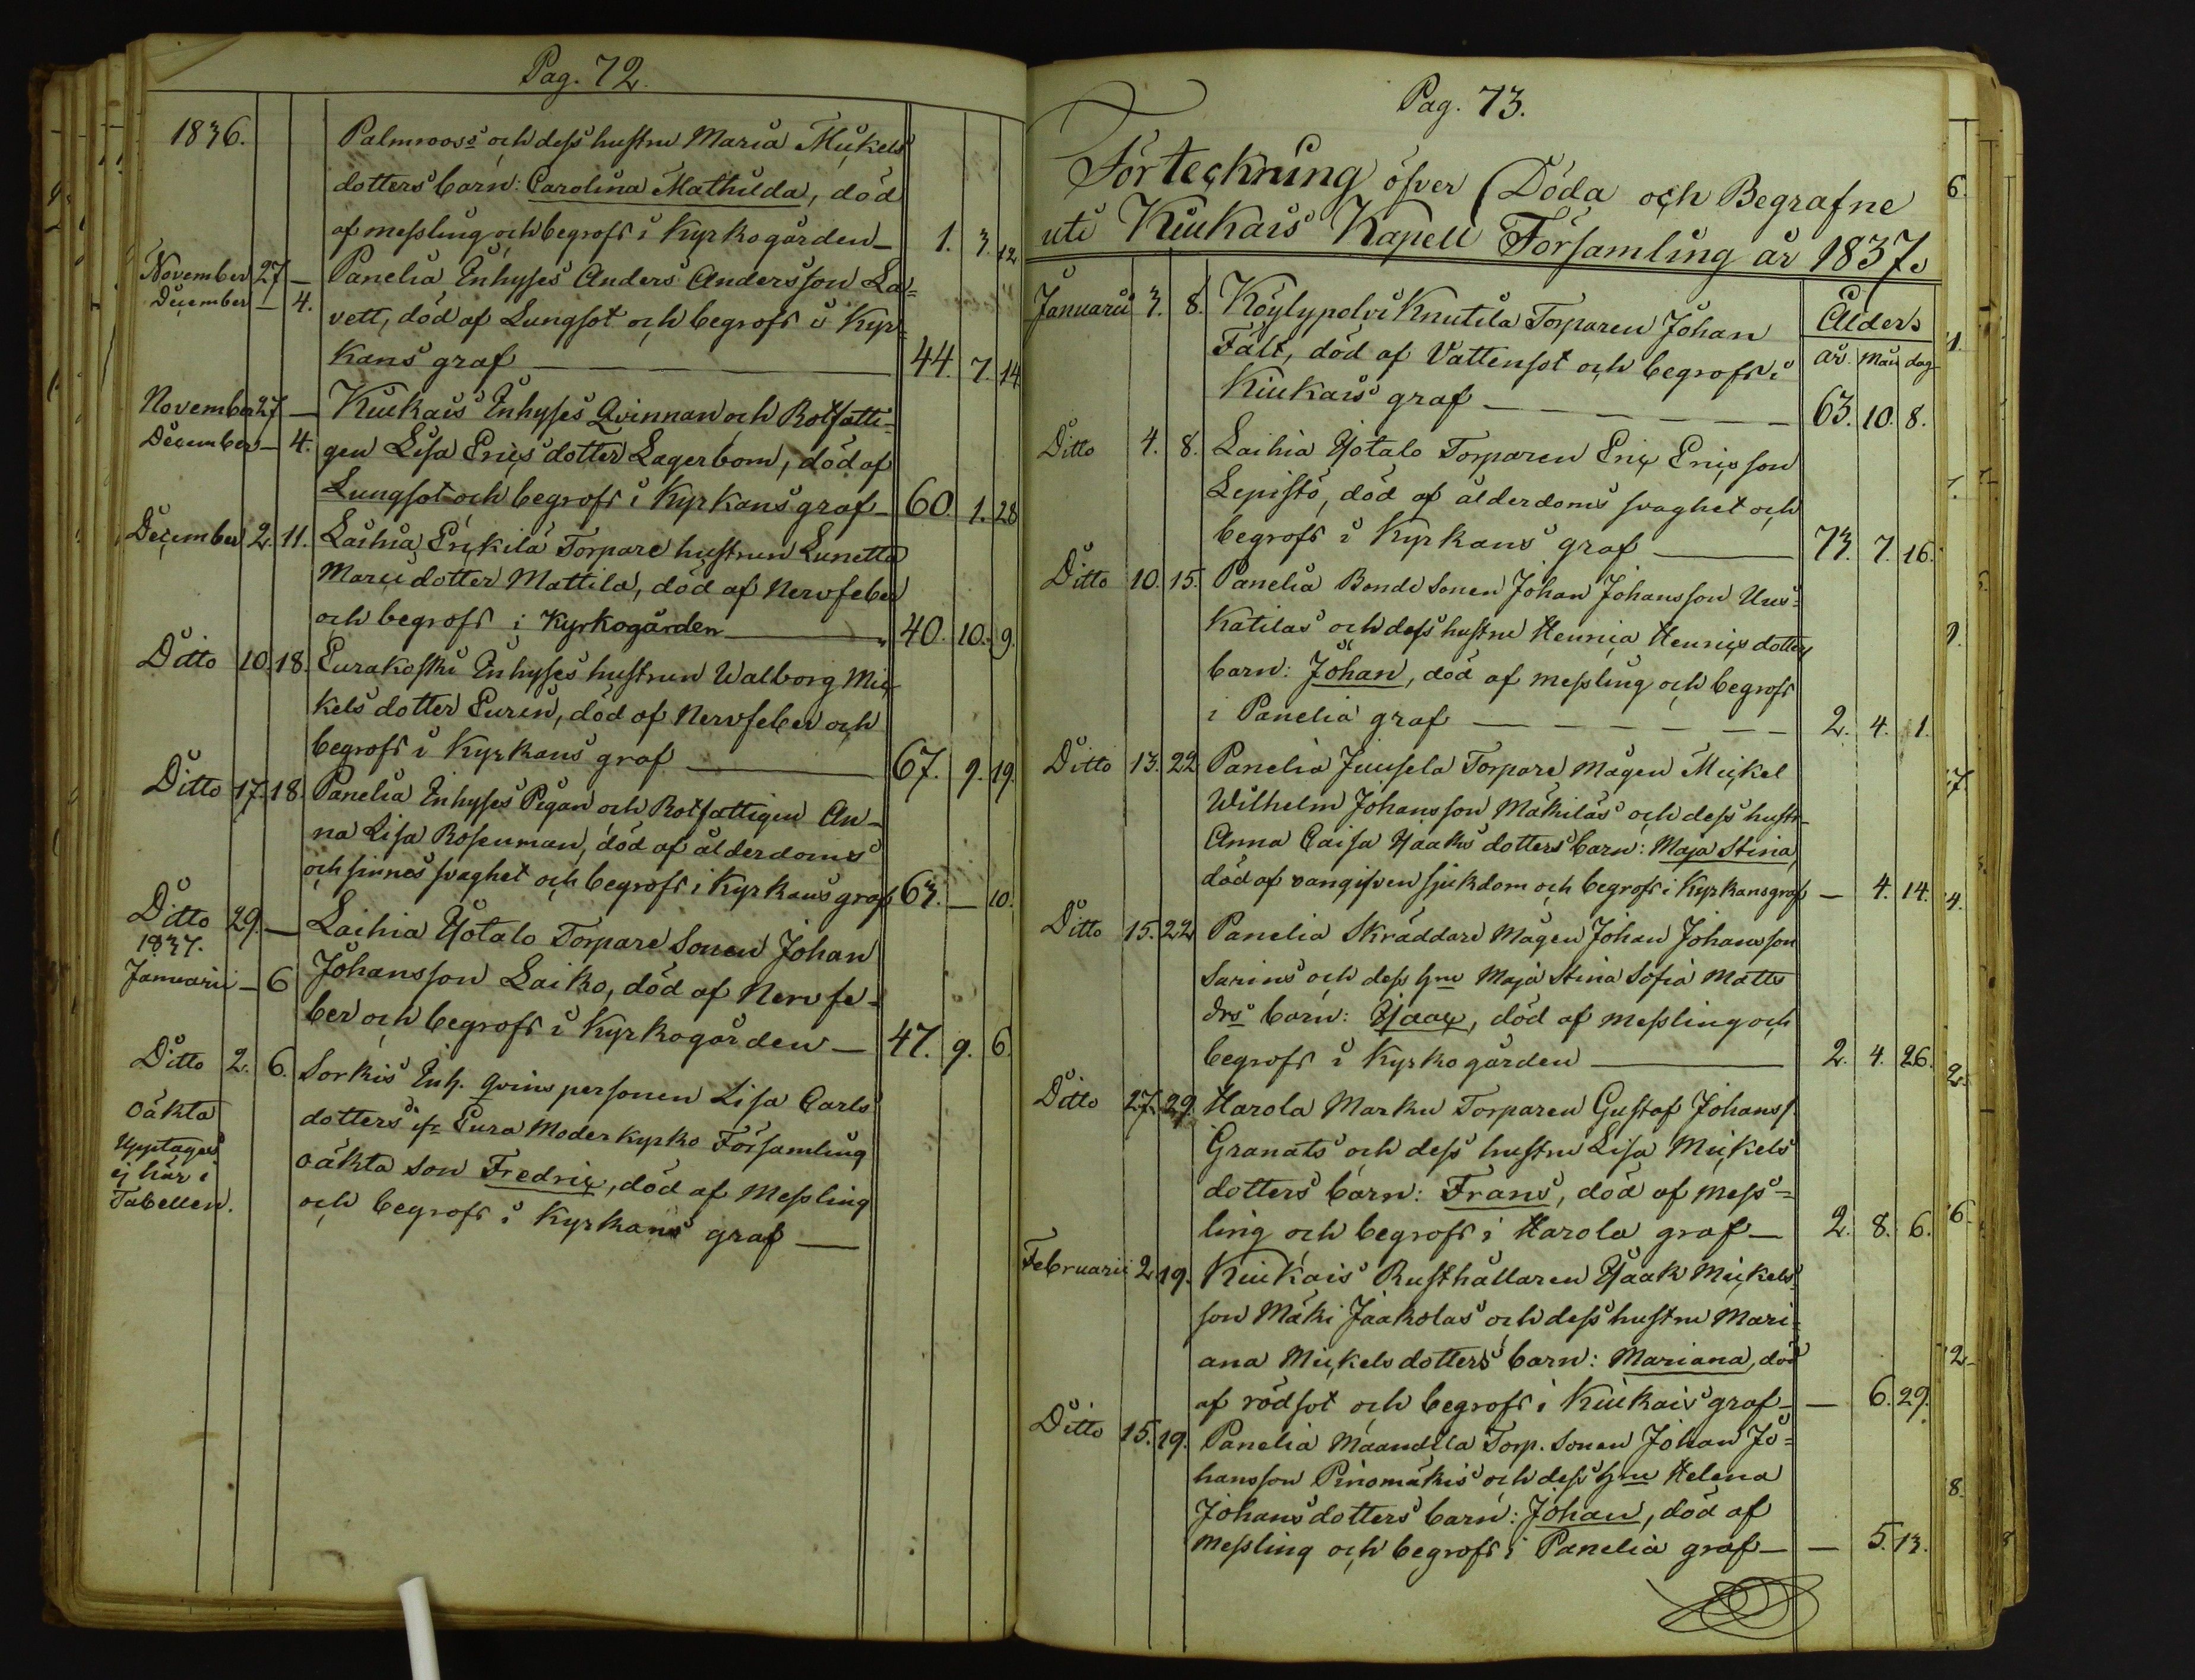 Pag. 72.
1836. Palmroos's och dess hustru Maria Mickels
dotters barn: Carolina Mathilda, död
af messling och begrofs i Kyrkogården — 1. 3. 12
November 27 — Panelia Inhyses Anders Andersson La=
December — 4. vett, död af Lungsot och begrofs i Kyr=
kans graf — 44. 7. 14
November 27 — Kiukais Inhyses Qvinnan och Rotfatti=
December — 4. gen Lisa Ericsdotter Lagerbom, död af
Lungsot och begrofs i Kyrkans graf — 60. 1. 28
December 2. 11. Laihia Erickilä Torpare hustrun Lunetta
Mariædotter Mattila, död af Nervfeber
och begrofs i Kyrkogården — 40. 10. 9.
Ditto 10. 18. Eurakoski Inhyses hustrun Walborg Mic
kelsdotter Eurén, död af Nervfeber och
begrofs i Kyrkans graf — 67. 9. 19.
Ditto 17. 18. Panelia Inhyses Pigan och Rotfattigen An-
na Lisa Rosenman, död af ålderdoms
och sinnes svaghet och begrofs i Kyrkans graf 63. — 10.
Ditto 29. — Laihia Yötalo Torpare Sonen Johan
1837.
Januarii — 6 Johansson Laiko, död af Nervfe-
ber och begrofs i Kyrkogården — 47. 9. 6.
Ditto 2. 6. Sorkis Inh. qvinspersonen Lisa Carls
oäkta dotters ifr Eura Moderkyrko Församling
Upptages oäkta son Fredric, död af Messling
ej här i och begrofs i Kyrkans graf —
Tabellen.
Pag. 73.
Förteckning öfver Döda och Begrafne
uti Kiukais Kapell Församling år 1837.
Januarii 3. 8. Köylypolvi Knutila Torparen Johan Ålder.
Fält, död af Vattensot och begrofs i år. mån dag
Kiukais graf — 63. 10. 8.
Ditto 4. 8. Laihia Yötalo Torparen Eric Ericsson
Lepistö, död af ålderdoms svaghet och
begrofs i Kyrkans graf — 73. 7. 16.
Ditto 10. 15. Panelia Bonde Sonen Johan Johansson Uus=
Katilas och dess hustru Henrica Henricsdotters
barn: Johan, död af messling och begrofs
i Panelia graf — 2. 4. 1.
Ditto 13. 22 Panelia Juusela Torpare Mågen Mickel
Wilhelm Johansson Mäkiläs och dess hustr-
Anna Caisa Isaaks dotters barn: Maja Stina,
död af oangifven sjukdom och begrofs i Kyrkans graf — 4. 14.
Ditto 15. 22 Panelia Skräddare Mågen Johan Johansson
Sarins och dess Hru Maja Stina Sofia Matts
drs barn: Isaac, död af messling och
begrofs i Kyrkogården — 2. 4. 26.
Ditto 27. 29. Harola Marku Torparen Gustaf Johanss.
Granats och dess hustru Lisa Mickels
dotters barn: Frans, död af mess=
ling och begrofs i Harola graf — 2. 8. 6.
Februarii 2 19. Kiukais Rusthållaren Isaak Mickels=
son Mäki Jaakolas och dess hustru Mari=
ana Mickelsdotters barn: Mariana, död
af rödsot och begrofs i Kiukais graf — — 6. 29.
Ditto 15. 19. Panelia Maandila Torp. Sonen Johan Jo=
hansson Pinomäkis och dess Hru Helena
Johansdotters barn: Johan, död af
messling och begrofs i Panelia graf — — 5. 13.